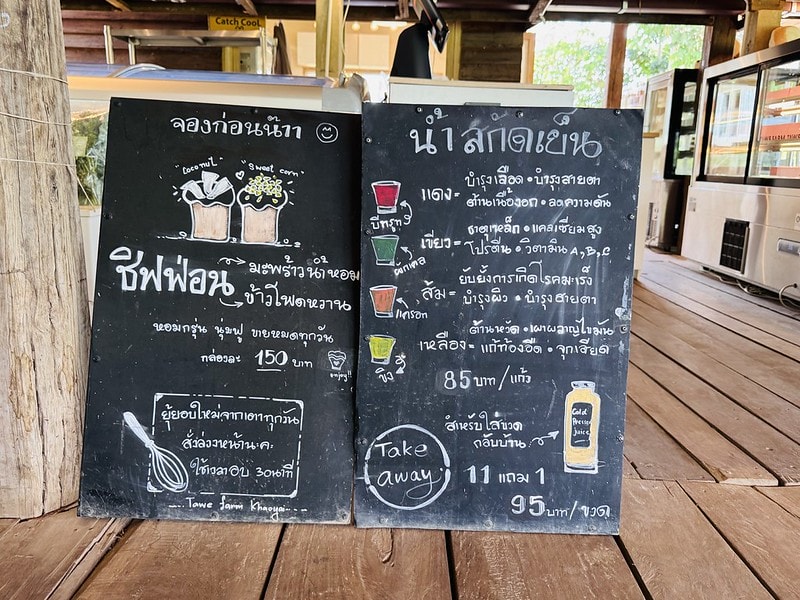 Catch Cool
จองก่อนน้าา
"Coconut"
"Sweet corn"
ชิฟฟ่อน
มะพร้าวน้ำหอม
ข้าวโพดหวาน
หอมกรุ่น นุ่มฟู ขายหมดทุกวัน
กล่องละ 150 บาท
enjoy!!
ยุ้ยอบใหม่จากเตาทุกวัน
สั่งล่วงหน้านะคะ
ใช้เวลาอบ 30นาที
Tawe farm Khaoyai
น้ำสกัดเย็น
บีทรูท
แดง = บำรุงเลือด • บำรุงสายตา
ต้านเนื้องอก • ลดความดัน
ผักเคล
เขียว = ธาตุเหล็ก • แคลเซียมสูง
โปรตีน • วิตามิน A, B, C
แครอท
ส้ม = ยับยั้งการเกิดโรคมะเร็ง
บำรุงผิว • บำรุงสายตา
ขิง
เหลือง = ต้านหวัด • เผาผลาญไขมัน
แก้ท้องอืด • จุกเสียด
85 บาท/แก้ว
Take away
สำหรับใส่ขวด
กลับบ้าน
Cold
Pressed
Juice
11 แถม 1
95 บาท/ขวด